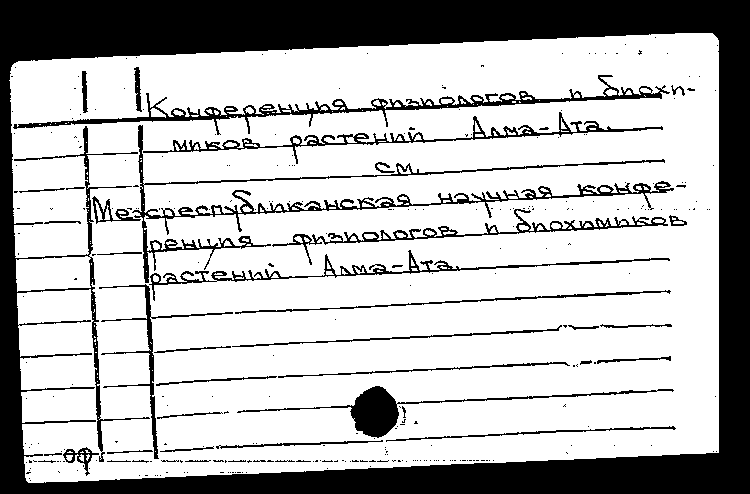 Конференция физиологов и биохи-
миков растений Алма-Ата.
см.
Межреспубликанская научная конфе-
ренция физиологов и биохимиков
растений Алма-Ата.
оф